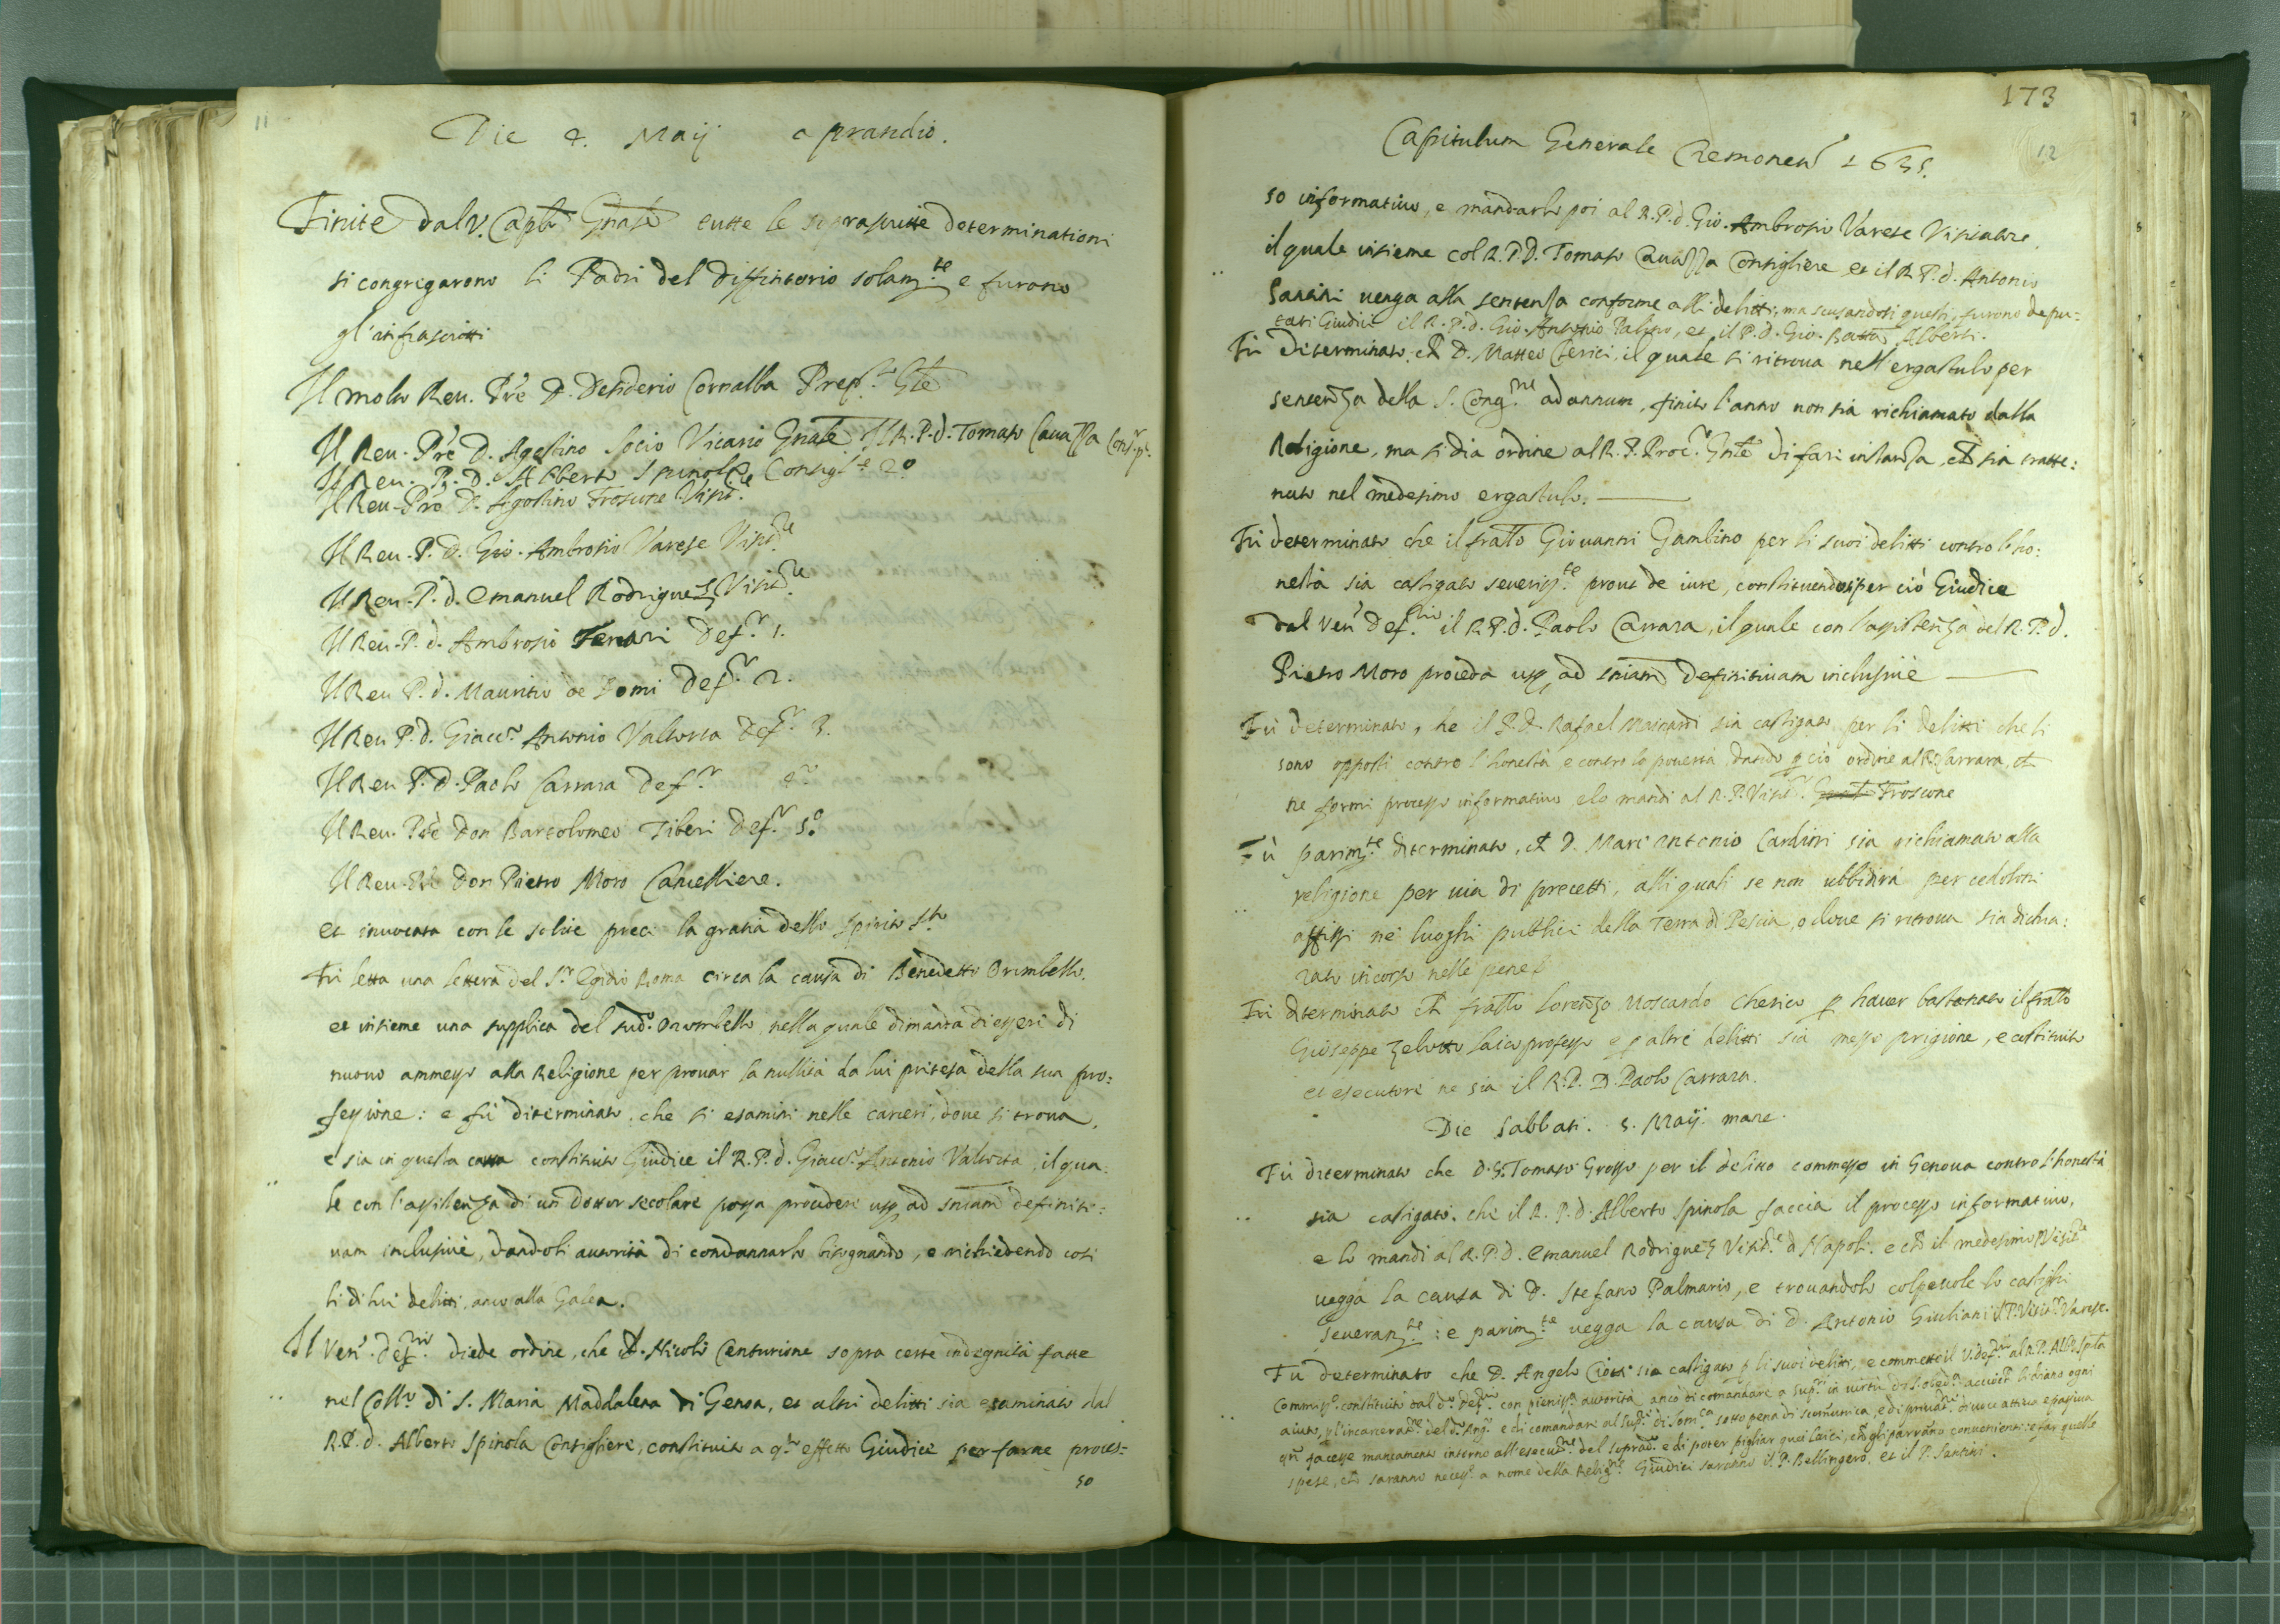 11
Die 4. Maij a prandio.
Finite dal V. Caplo Gnale tutte le soprascritte determinationi
si congregarono li Padri del Diffinitorio solam.te e furono
gl'infrascritti
Il molto Reu. Pre D. Desiderio Cornalba Prep.to Gle
Il Reu. Pre D. Agostino Socio Vicario Gnale Il R.P.d. Tomaso Cauazza Cons.r p.o
Il Reu. P. D. Alberto Spinola Consigl.re 2o
Il Reu. Pre D. Agostino Froscone Visit.re
Il Reu. P. D. Gio. Ambrosio Varese Visit.re
Il Reu. P. d. Emanuel Rodriguez Visit.re
Il Reu. P. d. Ambrosio Ferrari Def.r 1.
Il Reu P. d. Mauritio de Domi Def.r 2.
Il Reu P. d. Giac.o Antonio Valtorta Def.r 3.
Il Reu P. D. Paolo Carrara Def.r 4.o
Il Reu. Pre Don Bartolomeo Tiberi Def.r 5.o
Il Reu. Pre Don Pietro Moro Cancelliere.
et inuocata con le solite preci la gratia dello Spirito S.to
Fù letta una lettera del S.r Egidio Roma circa la causa di Benedetto Orombello.
et insieme una supplica del sud.o Orombello, nella quale dimanda di essere di
nuouo ammesso alla Religione per prouar la nullità da lui pretesa della sua pro:
fessione: e fù determinato, che si esamini nelle carceri, doue si troua,
e sia in questa causa constituito Giudice il R.P.d. Giac.o Antonio Valtorta, il qua:
le con l'assistenza di un dottor secolare possa procedere usq ad sniam definiti:
uam inclusiuè, dandoli autorità di condannarlo bisognando, e richiedendo così
li di lui delitti, anco alla Galea.
Il Ven. Def.rio diede ordine, che D. Nicolò Centurione sopra certe indegnità fatte
nel Coll.o di S. Maria Maddalena di Genoa, et altri delitti sia esaminato dal
R.P.d. Alberto Spinola Consigliere, constituito a q.to effetto Giudice per farne proces=
so
173
12
Capitulum Generale Cremonen 1635.
so informatiuo, e mandarlo poi al R.P.d. Gio. Ambrosio Varese Visitatore,
il quale insieme col R.P.D. Tomaso Cauazza Consigliere et il R.P.d. Antonio
Santini uenga alla sentenza conforme alli delitti; ma scusandosi questi, furono depu=
tati Giudici il R.P.d. Gio. Antonio Palino, et il P.d. Gio. Batta Alberti.
Fù determinato, ch D. Matteo Clerici, il quale si ritroua nell'ergastulo per
sentenza della S. Cong.ne ad annum, finito l'anno non sia richiamato dalla
Religione, ma si dia ordine al R.P. Proc.r Gnle di fare instanza, ch sia tratte:
nuto nel medesimo ergastulo.
Fù determinato che il fratello Giouanni Gambino per li suoi delitti contro l'ho:
nestà sia castigato seueriss.te prout de iure, constituendosi per ciò Giudice
dal Ven. Def.rio il R.P.d. Paolo Carrara, il quale con l'assistenza del R.P.d.
Pietro Moro proceda usq ad sniam definitiuam inclusiuè
Fù determinato, che il P.D. Rafael Mainardi sia castigato per li delitti che li
sono opposti contro l'honestà e contro la pouertà, dando p ciò ordine al P. Carrara, ch
ne formi processo informatiuo, e lo mandi al R.P. Visit.r Froscone
Fù parim.te determinato, ch D. Marc'Antonio Cardini sia richiamato alla
religione per uia di precetti, alli quali se non ubbidirà per cedoloni
affissi ne' luoghi publici della Terra di Pescia, o doue si ritroua sia dichia:
rato incorso nelle pene
Fù determinato ch fratello Lorenzo Moscardo Cherico p hauer bastonato il fratello
Giuseppe Zelotto laico professo e p altri delitti sia messo prigione, e costituito
et esecutore ne sia il R.P. D. Paolo Carrara.
Die Sabbati. 5. Maij. mane.
Fù determinato che D.G. Tomaso Grosso per il delitto commesso in Genoua contro l'honestà
sia castigato. che il R.P.d. Alberto Spinola faccia il processo informatiuo,
e lo mandi al R.P.d. Emanuel Rodriguez Visit.re d Napoli. e ch il medesimo P. Visit.re
uegga la causa di D. Stefano Palmario, e trouandolo colpeuole lo castighi
seueram.te: e parim.te uegga la causa di D. Antonio Giuliani il P. Visit.re Varese.
Fù determinato che D. Angelo Ciotti sia castigato p li suoi delitti, e commette il V. Def.rio al R.P. Alb.o Spi.la
Commiss.o constituito dal d.o Def.rio con pieniss.a autorità, anco di comandare a Sup.ri in uirtù di S. obed.a acciò ch li diano ogni
aiuto, p l'incarcerat.ne del d.o Ang.o e di comandare al Sup.re di Som.ca sotto pena di scomunica, e di priuat.ne di uoce attiua e passiua
qn facesse mancamento intorno all'esecut.ne del soprad.o e di poter pigliar quei laici, ch gli parranno conuenienti: e far quelle
spese, ch saranno necess.e a nome della Relig.ne Giudici saranno il P. Bellingero et il P. Santini.